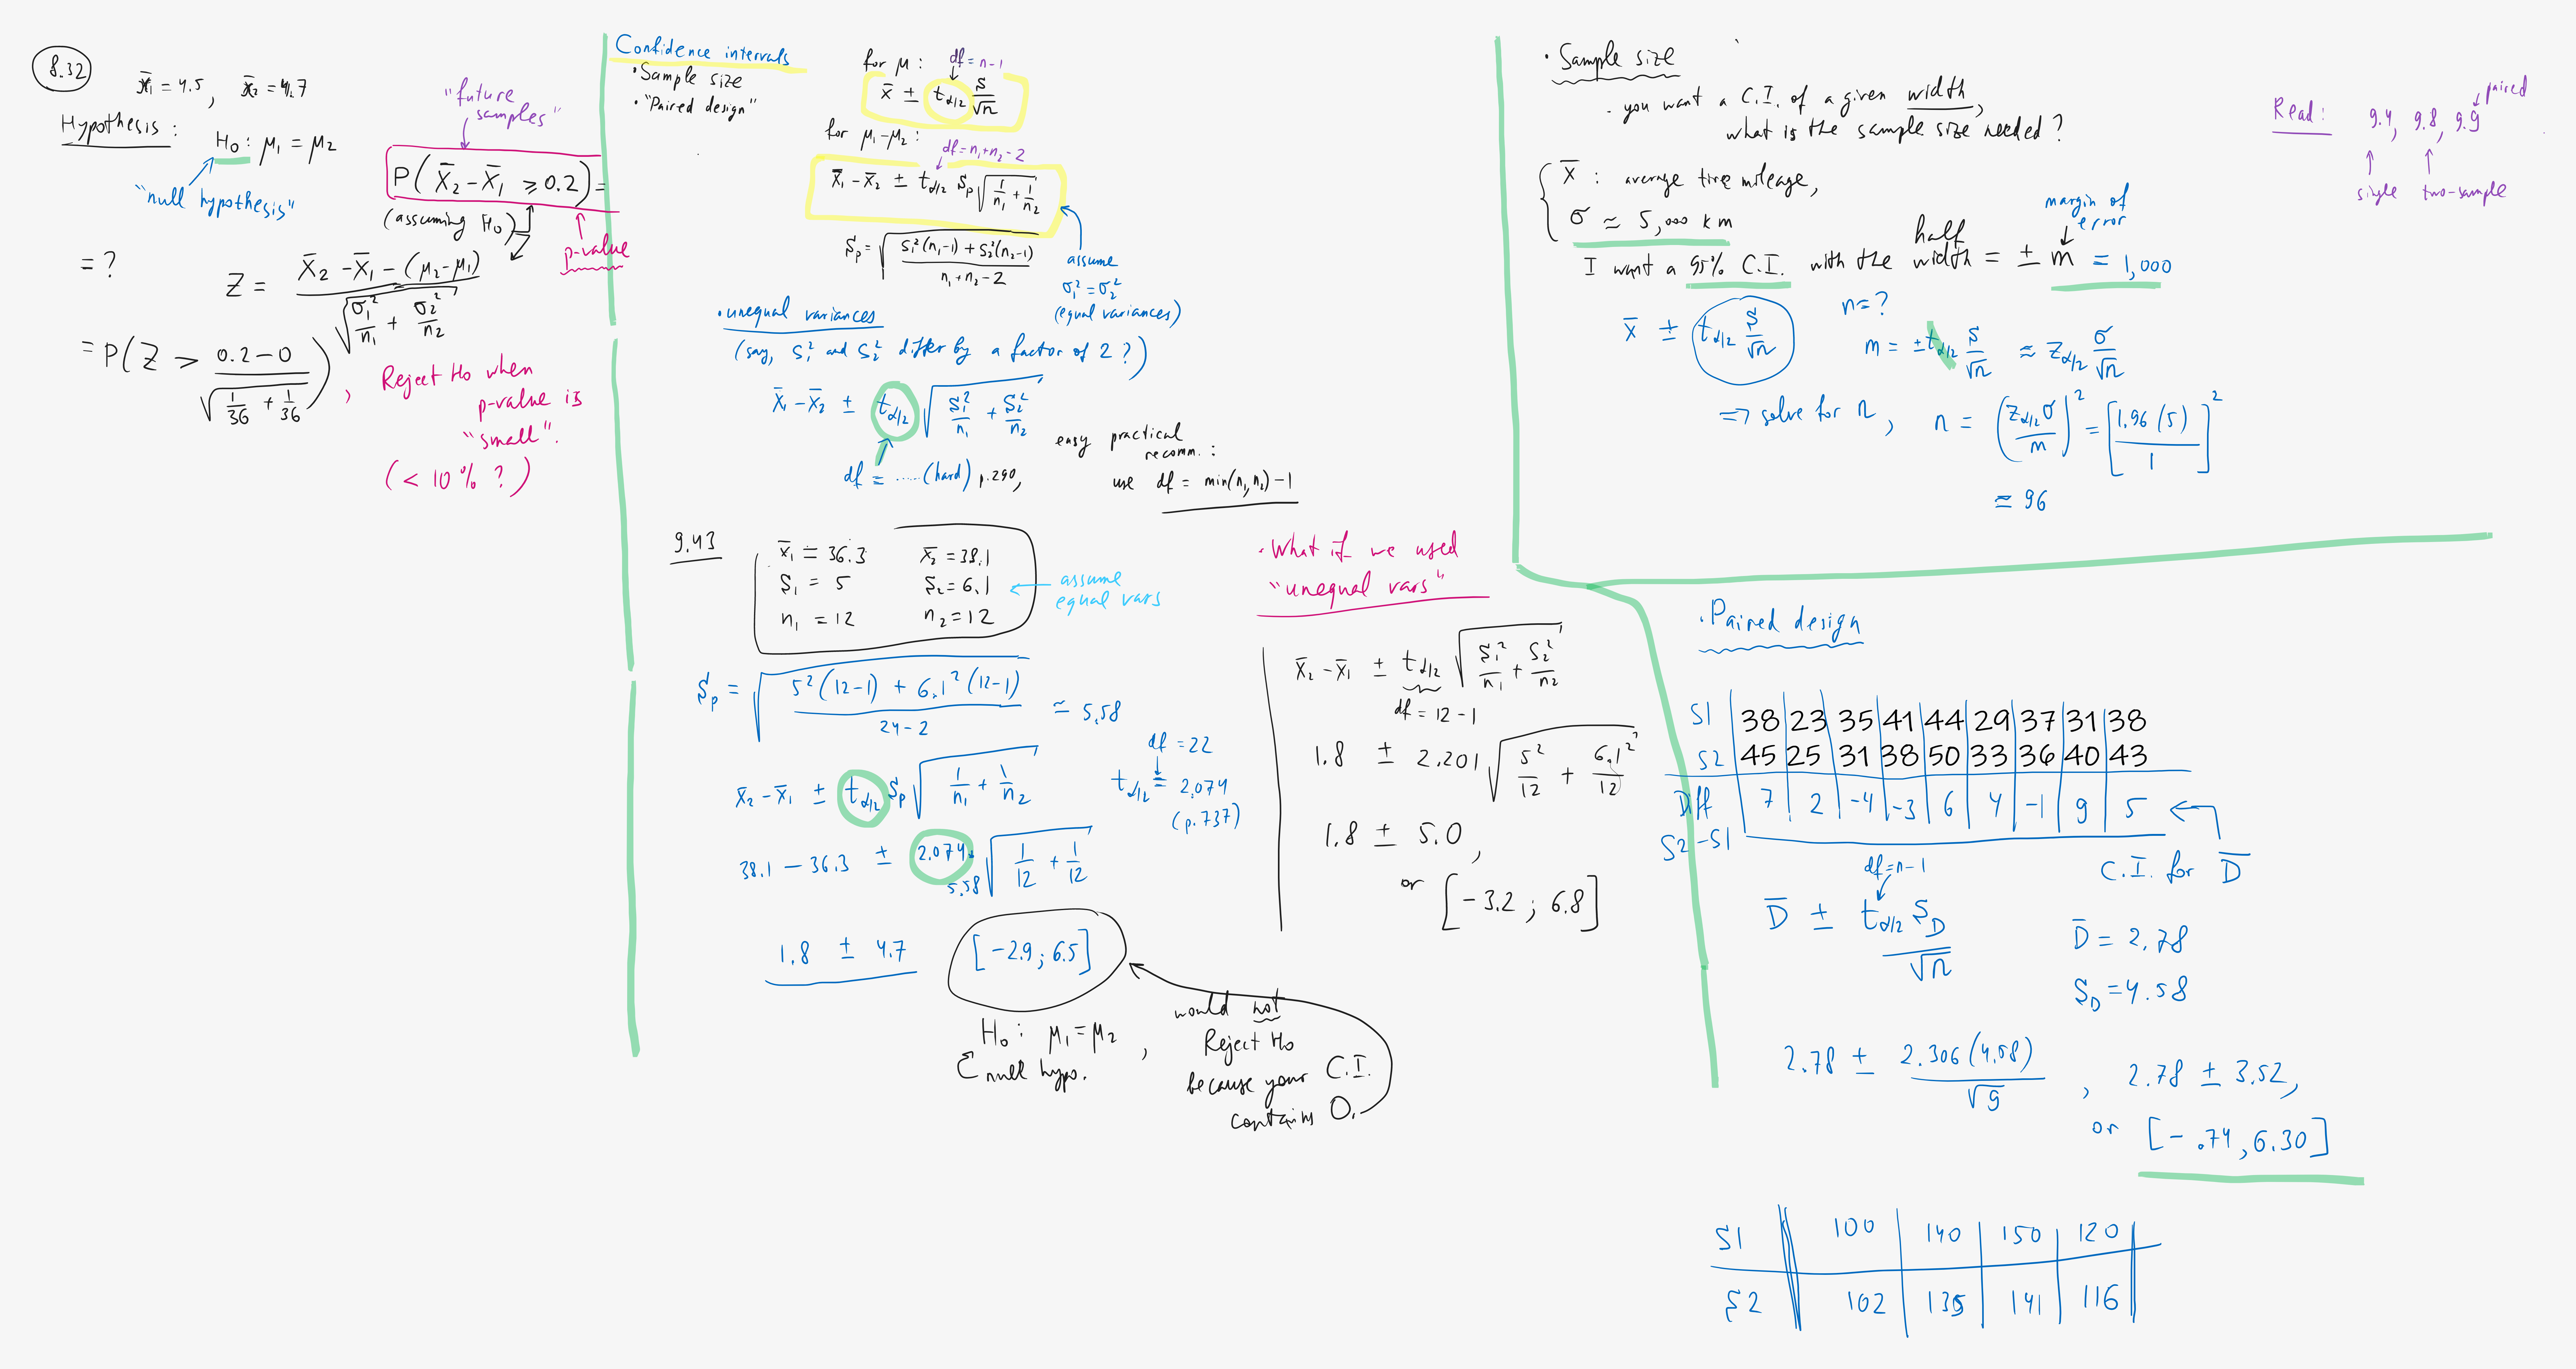 8.32
x̄₁ = 4.5, x̄₂ = 4.7
Hypothesis: H₀: μ₁ = μ₂
"null hypothesis"
"future samples"
P(X̄₂ - X̄₁ ≥ 0.2) =
(assuming H₀)
p-value
= ?
Z = (X̄₂ - X̄₁ - (μ₂ - μ₁)) / √(σ₁²/n₁ + σ₂²/n₂)
= P(Z > (0.2 - 0) / √(1/36 + 1/36)),
Reject H₀ when
p-value is
"small".
(< 10% ?)
Confidence intervals
• Sample size
• "Paired design"
for μ: df = n-1
x̄ ± t_α/2 S/√n
for μ₁-μ₂: df = n₁+n₂-2
x̄₁ - x̄₂ ± t_α/2 Sp √(1/n₁ + 1/n₂)
Sp = √((S₁²(n₁-1) + S₂²(n₂-1)) / (n₁+n₂-2))
assume
σ₁² = σ₂²
(equal variances)
• unequal variances
(say, S₁² and S₂² differ by a factor of 2?)
x̄₁ - x̄₂ ± t_α/2 √(S₁²/n₁ + S₂²/n₂)
df = ......(hard) p.290,
easy practical
recomm.:
use df = min(n₁, n₂) - 1
9.43
x̄₁ = 36.3 x̄₂ = 38.1
S₁ = 5 S₂ = 6.1
n₁ = 12 n₂ = 12
assume
equal vars
Sp = √((5²(12-1) + 6.1²(12-1)) / (24-2)) ≃ 5.58
x̄₂ - x̄₁ ± t_α/2 Sp √(1/n₁ + 1/n₂)
df = 22
t_α/2 = 2.074
(p.737)
38.1 - 36.3 ± 2.074 · 5.58 √(1/12 + 1/12)
1.8 ± 4.7 [-2.9; 6.5]
H₀: μ₁ = μ₂,
null hypo.
would not
Reject H₀
because your C.I.
contains 0.
• What if we used
"unequal vars"
x̄₂ - x̄₁ ± t_α/2 √(S₁²/n₁ + S₂²/n₂)
df = 12-1
1.8 ± 2.201 √(5²/12 + 6.1²/12)
1.8 ± 5.0,
or [-3.2; 6.8]
• Sample size
- you want a C.I. of a given width,
what is the sample size needed?
X̄: average tire mileage,
σ ≈ 5,000 km
I want a 95% C.I. with the half width = ± m = 1,000
margin of
error
x̄ ± t_α/2 S/√n
n = ?
m = ± t_α/2 S/√n ≈ z_α/2 σ/√n
=> solve for n, n = (z_α/2 σ / m)² = [1.96 (5) / 1]²
≈ 96
Read: 9.4, 9.8, 9.9
paired
single two-sample
• Paired design
S1 38 23 35 41 44 29 37 31 38
S2 45 25 31 38 50 33 36 40 43
Diff 7 2 -4 -3 6 4 -1 9 5
S2-S1
C.I. for D̄
df = n-1
D̄ ± t_α/2 S_D / √n
D̄ = 2.78
S_D = 4.58
2.78 ± 2.306 (4.58) / √9, 2.78 ± 3.52,
or [-.74, 6.30]
S1 100 140 150 120
S2 102 135 141 116